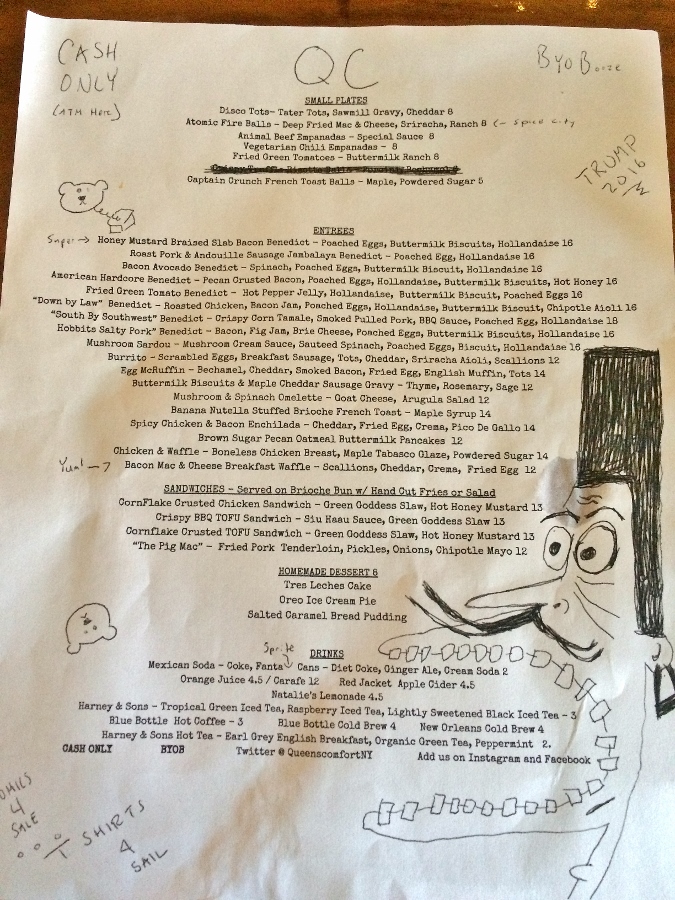 CASH
ONLY
(ATM Here)
QC
BYOBooze
TRUMP
2016
SMALL PLATES
Disco Tots- Tater Tots, Sawmill Gravy, Cheddar 8
Atomic Fire Balls - Deep Fried Mac & Cheese, Sriracha, Ranch 8 <- Spice City
Animal Beef Empanadas - Special Sauce 8
Vegetarian Chili Empanadas - 8
Fried Green Tomatoes - Buttermilk Ranch 8
Captain Crunch French Toast Balls - Maple, Powdered Sugar 5
ENTREES
Super -> Honey Mustard Braised Slab Bacon Benedict - Poached Eggs, Buttermilk Biscuits, Hollandaise 16
Roast Pork & Andouille Sausage Jambalaya Benedict - Poached Egg, Hollandaise 16
Bacon Avocado Benedict - Spinach, Poached Eggs, Buttermilk Biscuit, Hollandaise 16
American Hardcore Benedict - Pecan Crusted Bacon, Poached Eggs, Hollandaise, Buttermilk Biscuits, Hot Honey 16
Fried Green Tomato Benedict - Hot Pepper Jelly, Hollandaise, Buttermilk Biscuit, Poached Eggs 16
"Down by Law" Benedict - Roasted Chicken, Bacon Jam, Poached Eggs, Hollandaise, Buttermilk Biscuit, Chipotle Aioli 16
"South By Southwest" Benedict - Crispy Corn Tamale, Smoked Pulled Pork, BBQ Sauce, Poached Egg, Hollandaise 18
Hobbits Salty Pork" Benedict - Bacon, Fig Jam, Brie Cheese, Poached Eggs, Buttermilk Biscuits, Hollandaise 16
Mushroom Sardou - Mushroom Cream Sauce, Sauteed Spinach, Poached Eggs, Biscuit, Hollandaise 16
Burrito - Scrambled Eggs, Breakfast Sausage, Tots, Cheddar, Sriracha Aioli, Scallions 12
Egg McRuffin - Bechamel, Cheddar, Smoked Bacon, Fried Egg, English Muffin, Tots 14
Buttermilk Biscuits & Maple Cheddar Sausage Gravy - Thyme, Rosemary, Sage 12
Mushroom & Spinach Omelette - Goat Cheese, Arugula Salad 12
Banana Nutella Stuffed Brioche French Toast - Maple Syrup 14
Spicy Chicken & Bacon Enchilada - Cheddar, Fried Egg, Crema, Pico De Gallo 14
Brown Sugar Pecan Oatmeal Buttermilk Pancakes 12
Chicken & Waffle - Boneless Chicken Breast, Maple Tabasco Glaze, Powdered Sugar 14
Yum! -> Bacon Mac & Cheese Breakfast Waffle - Scallions, Cheddar, Crema, Fried Egg 12
SANDWICHES - Served on Brioche Bun w/ Hand Cut Fries or Salad
CornFlake Crusted Chicken Sandwich - Green Goddess Slaw, Hot Honey Mustard 13
Crispy BBQ TOFU Sandwich - Siu Haau Sauce, Green Goddess Slaw 13
Cornflake Crusted TOFU Sandwich - Green Goddess Slaw, Hot Honey Mustard 13
"The Pig Mac" - Fried Pork Tenderloin, Pickles, Onions, Chipotle Mayo 12
HOMEMADE DESSERT 6
Tres Leches Cake
Oreo Ice Cream Pie
Salted Caramel Bread Pudding
Sprite
DRINKS
Mexican Soda - Coke, Fanta Cans - Diet Coke, Ginger Ale, Cream Soda 2
Orange Juice 4.5 / Carafe 12 Red Jacket Apple Cider 4.5
Natalie's Lemonade 4.5
Harney & Sons - Tropical Green Iced Tea, Raspberry Iced Tea, Lightly Sweetened Black Iced Tea - 3
Blue Bottle Hot Coffee - 3 Blue Bottle Cold Brew 4 New Orleans Cold Brew 4
Harney & Sons Hot Tea - Earl Grey English Breakfast, Organic Green Tea, Peppermint 2.
CASH ONLY BYOB Twitter @ QueenscomfortNY Add us on Instagram and Facebook
4
SALE
T SHIRTS
4
SAIL